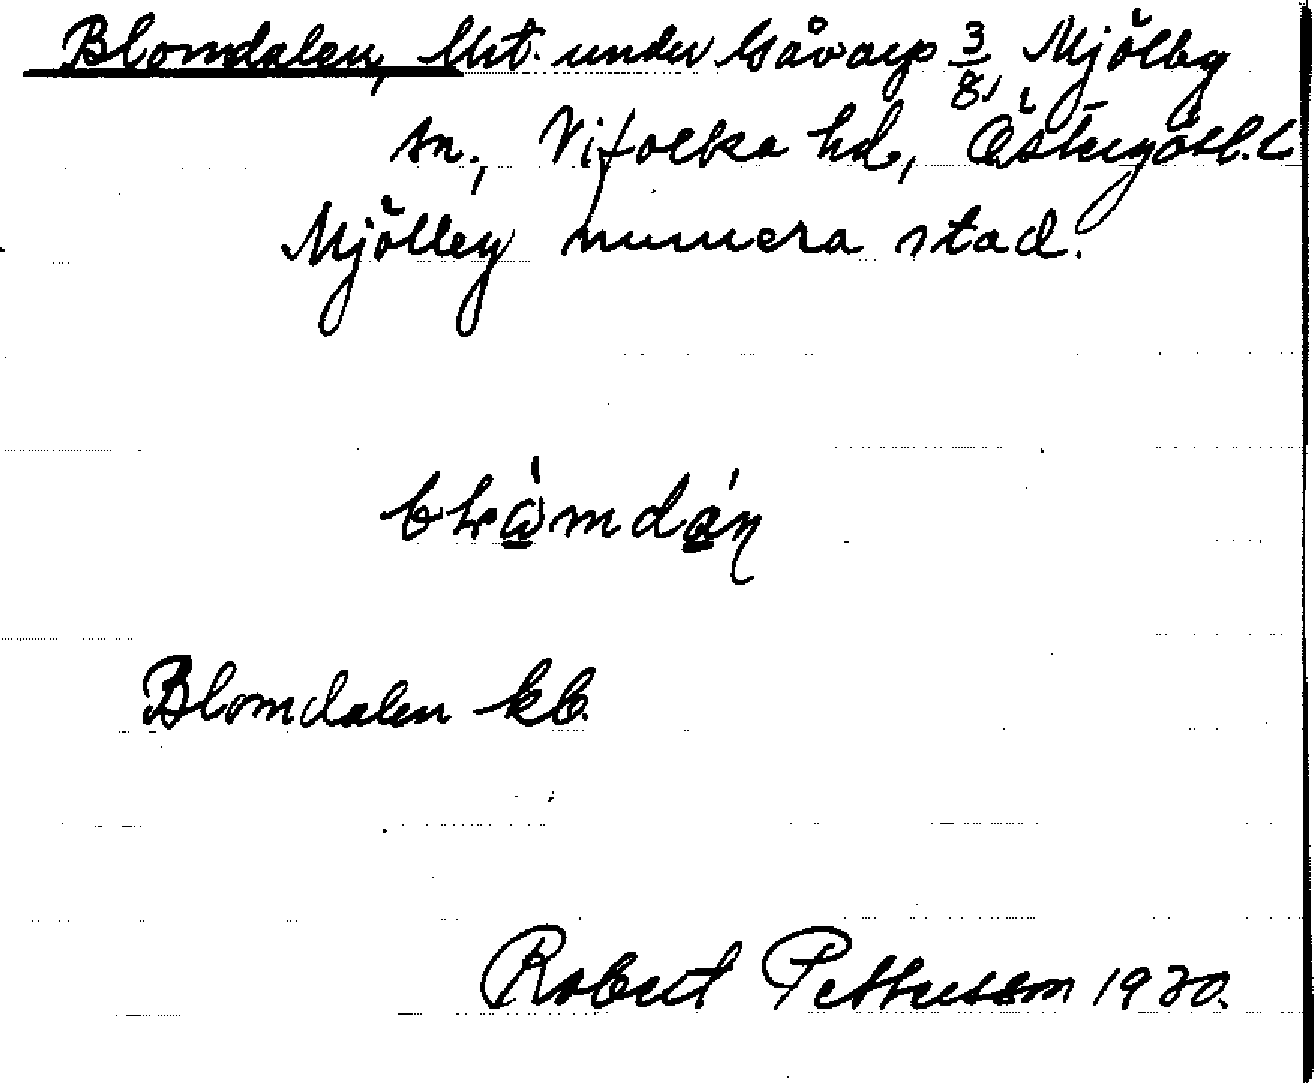 Blomdalen, lht. under Gåvarp 3/8, Mjölby
sn., Vifolka hd, Östergötl. l.
Mjölby numera stad.
blωmdαn
Blomdalen kb.
Robert Pettersson 1930.